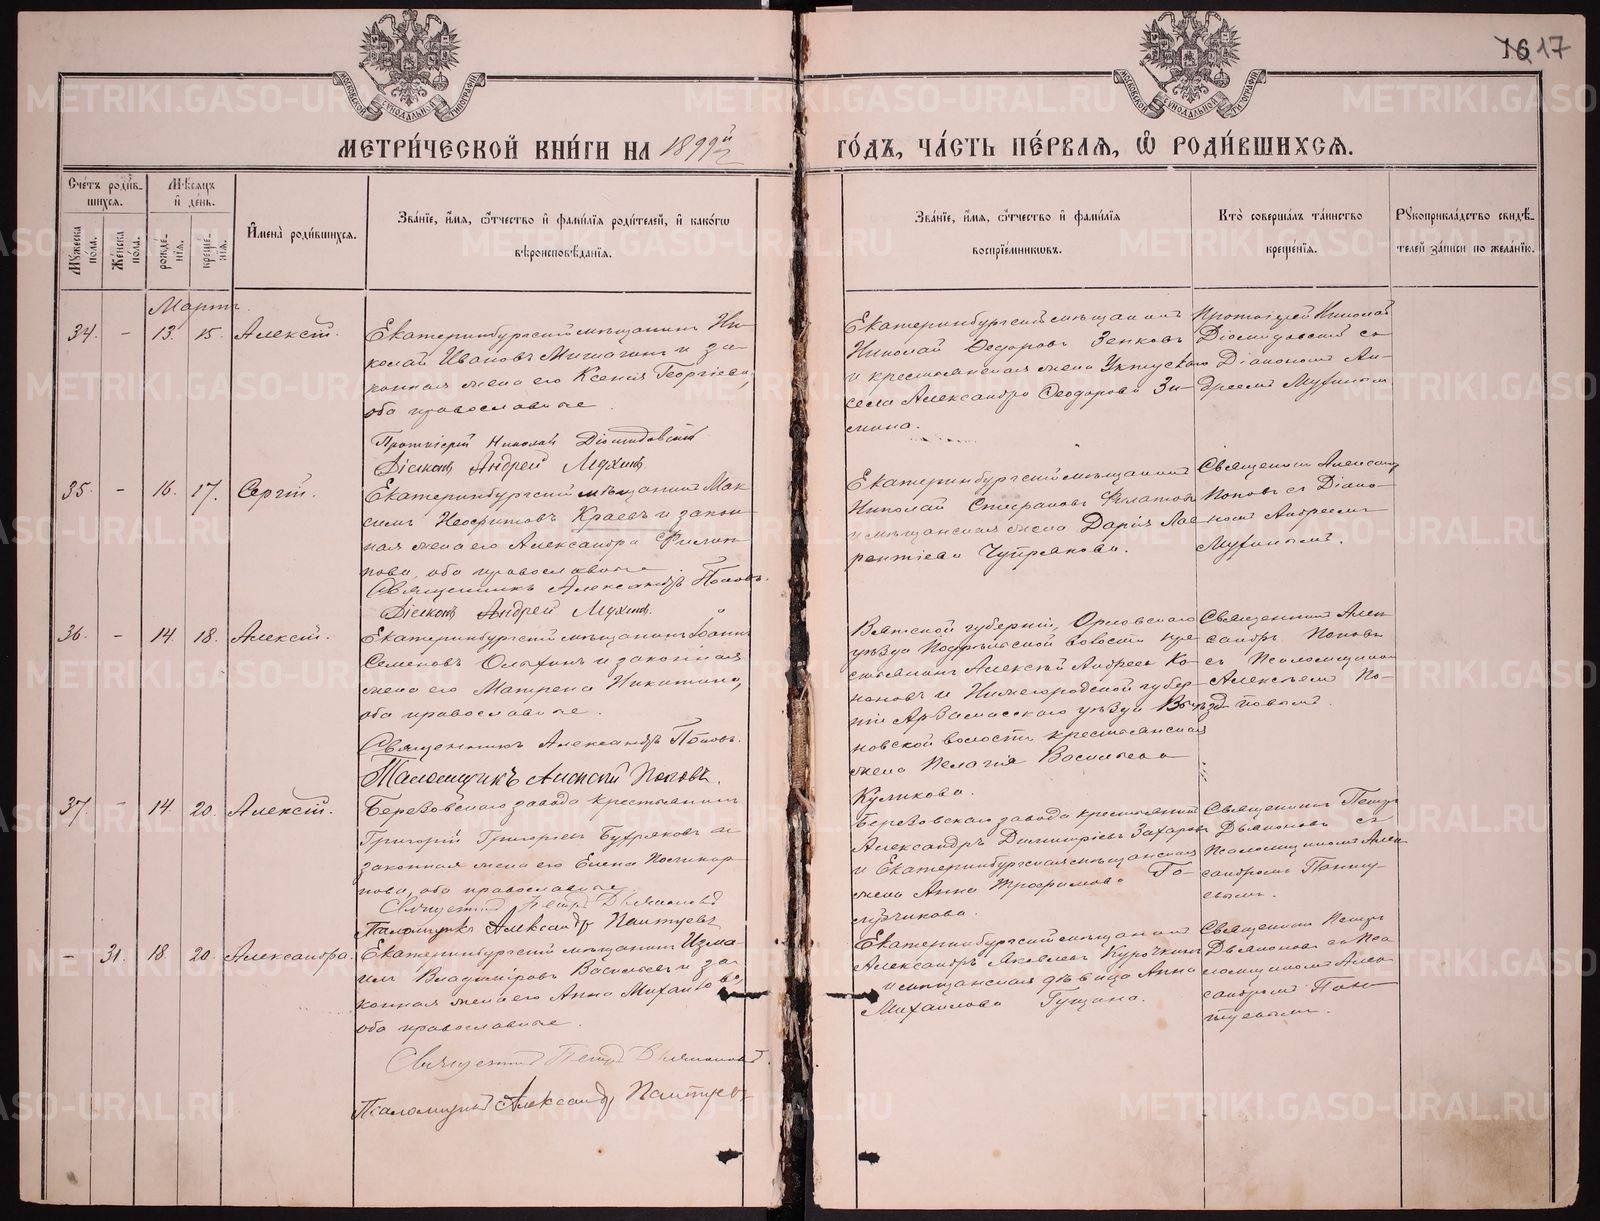 16 17
МОСКОВСКОЙ СѴНОДАЛЬНОЙ ТИПОГРАФІИ
МОСКОВСКОЙ СѴНОДАЛЬНОЙ ТИПОГРАФІИ
МЕТРИ́ЧЕСКОЙ КНИ́ГИ НА 1899й
ГО́ДЪ, ЧА́СТЬ ПЕ́РВАѦ, Ѡ РОДИ́ВШИХСѦ.
Сче́тъ роди́в-
шихсѧ.
Мꙋ́жеска по́ла.
Же́нска по́ла.
Мѣ́сѧцъ
и҆ де́нь.
рожде́нїѧ.
креще́нїѧ.
И҆мена̀ роди́вшихсѧ.
Зва́нїе, и҆́мѧ, ѻ҆́тчество и҆ фамі́лїѧ роди́телей, и҆ како́гѡ
вѣроисповѣ́данїѧ.
Зва́нїе, и҆́мѧ, ѻ҆́тчество и҆ фамі́лїѧ
воспрїе́мниковъ.
Кто̀ соверша́лъ та́инство
креще́нїѧ.
Рꙋкоприкла́дство свидѣ́-
телей за́писи по жела́нїю.
Мартъ.
34. - 13. 15. Алексѣй.
Екатеринбургскій мѣщанинъ Ни-
колай Ивановъ Мишагинъ и за-
конная жена его Ксенія Георгіева,
оба православные.
Протоіерей Николай Діомидовскій
Діаконъ Андрей Мухинъ.
Екатеринбургскій мѣщанинъ
Николай Ѳедоровъ Зенковъ
и крестьянская жена Уктусскаго
села Александра Ѳеодорова Зи-
мина.
Протоіерей Николай
Діомидовскій съ
Діакономъ Ан-
дреемъ Мухинымъ.
35. - 16. 17. Сергій.
Екатеринбургскій мѣщанинъ Мак-
симъ Неофитовъ Краевъ и закон-
ная жена его Александра Филип-
пова, оба православные.
Священникъ Александръ Поповъ.
Діаконъ Андрей Мухинъ.
Екатеринбургскій мѣщанинъ
Николай Стефановъ Филатовъ
и мѣщанская жена Дарія Лав-
рентіева Чупракова.
Священникъ Александръ
Поповъ съ Діако-
номъ Андреемъ
Мухинымъ.
36. - 14. 18. Алексѣй.
Екатеринбургскій мѣщанинъ Іоаннъ
Семеновъ Ольхинъ и законная
жена его Матрена Никитина,
оба православные.
Священникъ Александръ Поповъ.
Псаломщикъ Алексѣй Поповъ.
Вятской губерніи, Орловскаго
уѣзда волости кре-
стьянинъ Алексѣй Андреевъ Ко-
ноновъ и Нижегородской губер-
ніи Арзамасскаго уѣзда Выѣзд-
новской волости крестьянская
жена Пелагія Васильева
Куликова.
Священникъ Алек-
сандръ Поповъ
съ Псаломщикомъ
Алексѣемъ По-
повымъ.
37. - 14. 20. Алексѣй.
Березовскаго завода крестьянинъ
Григорій Григорьевъ Бухряковъ и
законная жена его Елена Поликар-
пова, оба православные.
Священникъ Петръ Дьяконовъ
Псаломщикъ Александръ Пантуевъ
Березовскаго завода крестьянинъ
Александръ Димитріевъ Захаровъ
и Екатеринбургская мѣщанская
жена Анна Трофимова Го-
лубчикова.
Священникъ Петръ
Дьяконовъ съ
Псаломщикомъ Алек-
сандромъ Панту-
евымъ.
- 31. 18. 20. Александра.
Екатеринбургскій мѣщанинъ Изма-
илъ Владиміровъ Васильевъ и за-
конная жена его Анна Михайлова,
оба православные.
Священникъ Петръ Дьяконовъ.
Псаломщикъ Александръ Пантуевъ
Екатеринбургскій мѣщанинъ
Александръ Яковлевъ Курочкинъ
и мѣщанская дѣвица Анна
Михайлова Гущина.
Священникъ Петръ
Дьяконовъ съ Пса-
ломщикомъ Алек-
сандромъ Пан-
туевымъ.
METRIKI.GASO-URAL.RU